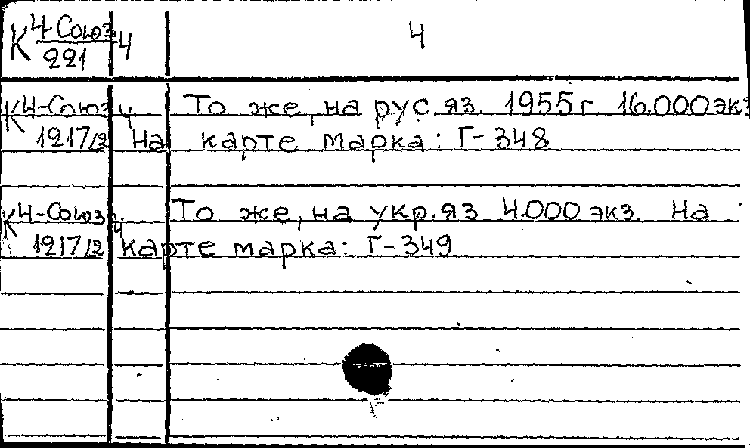 К 4-Союз 4 4
221
К 4-Союз 4 То же, на рус. яз. 1955 г 16.000 экз
1217/2 На карте марка: Г-348
К 4-Союз 4 То же, на укр. яз 4.000 экз. На
1217/2 карте марка: Г-349